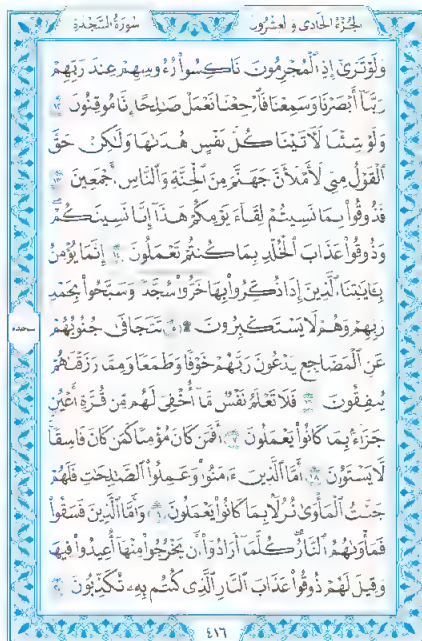 الجزء الحادي والعشرون سورة السجدة
وَلَوْ تَرَىٰٓ إِذِ ٱلْمُجْرِمُونَ نَاكِسُوا۟ رُءُوسِهِمْ عِندَ رَبِّهِمْ
رَبَّنَآ أَبْصَرْنَا وَسَمِعْنَا فَٱرْجِعْنَا نَعْمَلْ صَٰلِحًا إِنَّا مُوقِنُونَ ١٢
وَلَوْ شِئْنَا لَءَاتَيْنَا كُلَّ نَفْسٍ هُدَىٰهَا وَلَٰكِنْ حَقَّ
ٱلْقَوْلُ مِنِّى لَأَمْلَأَنَّ جَهَنَّمَ مِنَ ٱلْجِنَّةِ وَٱلنَّاسِ أَجْمَعِينَ ١٣
فَذُوقُوا۟ بِمَا نَسِيتُمْ لِقَآءَ يَوْمِكُمْ هَٰذَآ إِنَّا نَسِينَٰكُمْ
وَذُوقُوا۟ عَذَابَ ٱلْخُلْدِ بِمَا كُنتُمْ تَعْمَلُونَ ١٤ إِنَّمَا يُؤْمِنُ
بِـَٔايَٰتِنَا ٱلَّذِينَ إِذَا ذُكِّرُوا۟ بِهَا خَرُّوا۟ سُجَّدًا وَسَبَّحُوا۟ بِحَمْدِ
رَبِّهِمْ وَهُمْ لَا يَسْتَكْبِرُونَ ۩ ١٥ تَتَجَافَىٰ جُنُوبُهُمْ
سجدة
عَنِ ٱلْمَضَاجِعِ يَدْعُونَ رَبَّهُمْ خَوْفًا وَطَمَعًا وَمِمَّا رَزَقْنَٰهُمْ
يُنفِقُونَ ١٦ فَلَا تَعْلَمُ نَفْسٌ مَّآ أُخْفِىَ لَهُم مِّن قُرَّةِ أَعْيُنٍ
جَزَآءًۢ بِمَا كَانُوا۟ يَعْمَلُونَ ١٧ أَفَمَن كَانَ مُؤْمِنًا كَمَن كَانَ فَاسِقًا
لَّا يَسْتَوُۥنَ ١٨ أَمَّا ٱلَّذِينَ ءَامَنُوا۟ وَعَمِلُوا۟ ٱلصَّٰلِحَٰتِ فَلَهُمْ
جَنَّٰتُ ٱلْمَأْوَىٰ نُزُلًۢا بِمَا كَانُوا۟ يَعْمَلُونَ ١٩ وَأَمَّا ٱلَّذِينَ فَسَقُوا۟
فَمَأْوَىٰهُمُ ٱلنَّارُ كُلَّمَآ أَرَادُوٓا۟ أَن يَخْرُجُوا۟ مِنْهَآ أُعِيدُوا۟ فِيهَا
وَقِيلَ لَهُمْ ذُوقُوا۟ عَذَابَ ٱلنَّارِ ٱلَّذِى كُنتُم بِهِۦ تُكَذِّبُونَ ٢٠
٤١٦